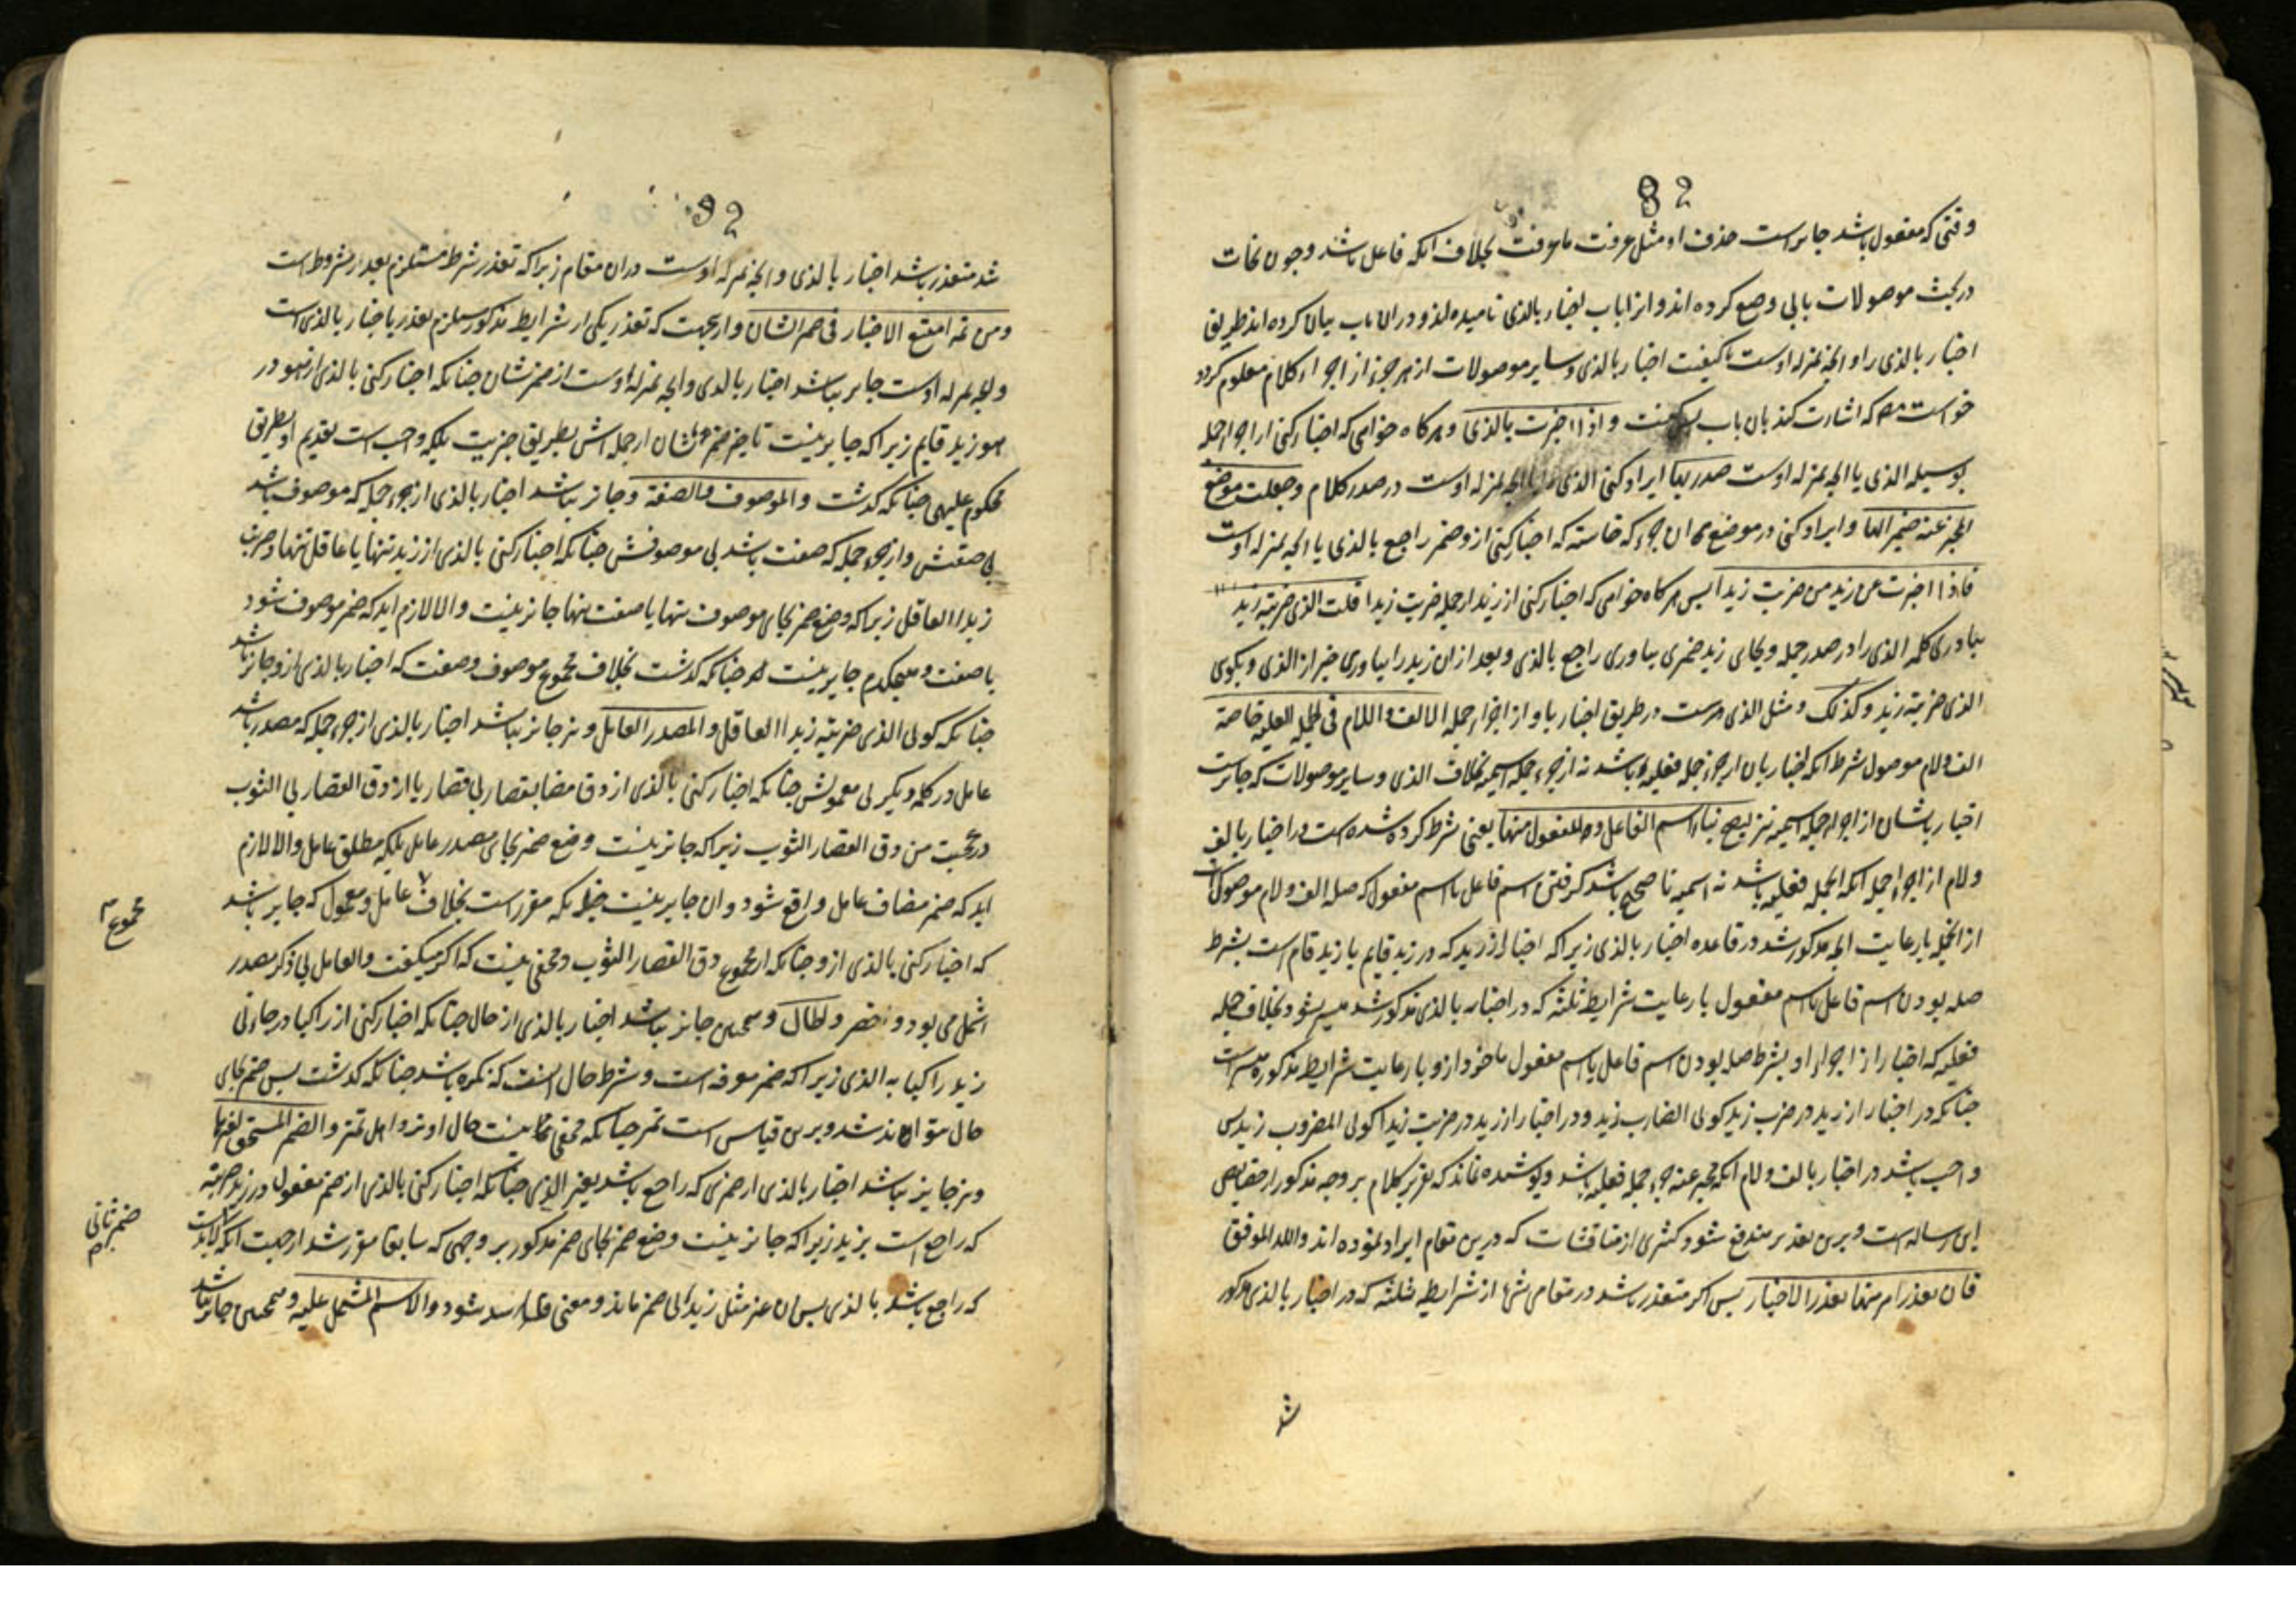 82
وقتی که مفعول باشد جایز است حذف او مثل عرفت ما عرفت بخلاف آنکه فاعل باشد و چون نحات
در بحث موصولات بابی وضع کرده اند و انرا باب اخبار بالذی نامیده اند و در ان باب بیان کرده اند طریق
اخبار بالذی را و انچه بمنزله اوست تا کیفیت اخبار بالذی و سایر موصولات از هر جزء از اجزاء کلام معلوم کردد
خواست مص که اشارت کند بان باب پس کفت و اذا اخبرت بالذی و هر کاه خواهی که اخبار کنی از اجزاء جمله
بوسیله الذی یا انچه بمنزله اوست صدرتها ایراد کنی الذی یا انچه بمنزله اوست در صدر کلام و جعلت موضع
المخبر عنه ضمیرا لها و ایراد کنی در موضع ان جزء که خاسته که اخبار کنی ازو ضمیر راجع بالذی یا انچه بمنزله اوست
فاذا اخبرت عن زید من ضربت زیدا پس هر کاه خواهی که اخبار کنی از زید از جمله ضربت زیدا قلت الذی ضربته زید
بیاوری کلمه الذی را در صدر جمله و بجای زید ضمیری بیاوری راجع بالذی و بعد از ان زید را بیاوری خبر از الذی و بکوی
الذی ضربته زید و کذلک و مثل الذی هست در طریق اخبار باو از اجزاء جمله الالف و اللام فی الجمله الفعلیه خاصة
الف و لام موصول بشرط انکه اخبار بان از جزء جمله فعلیه باشد نه از جزء جمله اسمیه بخلاف الذی و سایر موصولات که جایز است
اخبار باشان از اجزاء جمله اسمیه نیز لیصح بناء اسم الفاعل و المفعول منها یعنی شرط کرده شده است در اخبار بالف
و لام از اجزاء جمله انکه انجمله فعلیه باشد نه اسمیه تا صحیح باشد کرفتن اسم فاعل یا اسم مفعول که صله الف و لام موصول است
از انجمله با رعایت انچه مذکور شد در قاعده اخبار بالذی زیرا که اخبار از زید که در زید قایم یا زید قام است بشرط
صله بودن اسم فاعل یا اسم مفعول با رعایت شرایط ثلثه که در اخبار بالذی مذکور شد میسر نشود بخلاف جمله
فعلیه که اخبار از اجزاء او بشرط صله بودن اسم فاعل یا اسم مفعول ماخوذ ازو با رعایت شرایط مذکوره میسر است
چنانکه در اخبار از زید در ضرب زید کوئی الضارب زید و در اخبار از زید در ضربت زیدا کوئی المضروب زید پس
واجب باشد در اخبار بالف و لام انکه مخبر عنه جزء جمله فعلیه باشد و پوشیده نماند که تقریر کلام بر وجه مذکور از خصایص
این رساله است و برین تقدیر مندفع شود کثیری از مناقشات که درین مقام ایراد نموده اند والله الموفق
فان تعذر امر منها تعذر الاخبار پس اکر متعذر باشد در مقامی شیء از شرایط ثلثه که در اخبار بالذی مذکور
شد
92
شد متعذر باشد اخبار بالذی و انچه بمنزله اوست در ان مقام زیرا که تعذر شرط مستلزم تعذر مشروط است
و من ثم امتنع الاخبار فی ضمیر الشان و از نجهت که تعذر یکی از شرایط مذکور مستلزم تعذر اخبار بالذی است
و انچه بمنزله اوست جایز نباشد اخبار بالذی و انچه بمنزله اوست از ضمیر شان چنانکه اخبار کنی بالذی از هو در
هو زید قایم زیرا که جایز نیست تاخیر ضمیر شان از جمله اش بطریق خبریت بلکه واجب است تقدیم او بطریق
محکوم علیهی چنانکه کذشت و الموصوف و الصفة و جائز نباشد اخبار بالذی از جزء جمله که موصوف باشد
بی صفتش و از جزء جمله که صفت باشد بی موصوفش چنانکه اخبار کنی بالذی از زید تنها یا عاقل تنها در ضربت
زیدا العاقل زیرا که وضع ضمیر بجای موصوف تنها یا صفت تنها جائز نیست و الا لازم اید که ضمیر موصوف شود
یا صفت و هیچکدام جایز نیست چنانکه کذشت بخلاف مجموع موصوف و صفت که اخبار بالذی ازو جائز باشد
چنانکه کوئی الذی ضربته زیدا العاقل و المصدر العامل و نیز جائز نباشد اخبار بالذی از جزء جمله که مصدر باشد
عامل در کلمه دیکر بی معمولش چنانکه اخبار کنی بالذی از دق مضاف بقصار بی قصار یا از دق القصار بی الثوب
در عجبت من دق القصار الثوب زیرا که جائز نیست وضع ضمیر بجای مصدر عامل بلکه مطلق عامل و الا لازم
اید که ضمیر مضاف عامل واقع شود و ان جایز نیست چنانکه مقرر است بخلاف عامل و معمول که جایز باشد
مجموع
که اخبار کنی بالذی ازو چنانکه از مجموع دق القصار الثوب و مخفی نیست که اکر میکفت و العامل بی ذکر مصدر
اشمل می بود و اخصر و الحال و همچنین جائز نباشد اخبار بالذی از حال چنانکه اخبار کنی از راکبا در جاءنی
زید راکبا به الذی زیرا که ضمیر معرفه است و شرط حال انست که نکره باشد چنانکه کذشت پس ضمیر بجای
حال نتواند شد و برین قیاس است تمیز چنانکه مخفی نیست حال او نزد اهل تمیز و الضمیر المستحق لغیرها
و نیز جایز نباشد اخبار بالذی از ضمیری که راجع باشد بغیر الذی چنانکه اخبار کنی بالذی از ضمیر مفعول در زید ضربته
ضمیر ثانی
که راجع است بزید زیرا که جائز نیست وضع ضمیر بجای ضمیر مذکور بر وجهی که سابقا مقرر شد از جهت انکه
که راجع باشد بالذی پس ان ضمیر مثل زید بی ضمیر ماند و معنی فاسد شود و الاسم المشتمل علیه و همچنین جائز نباشد